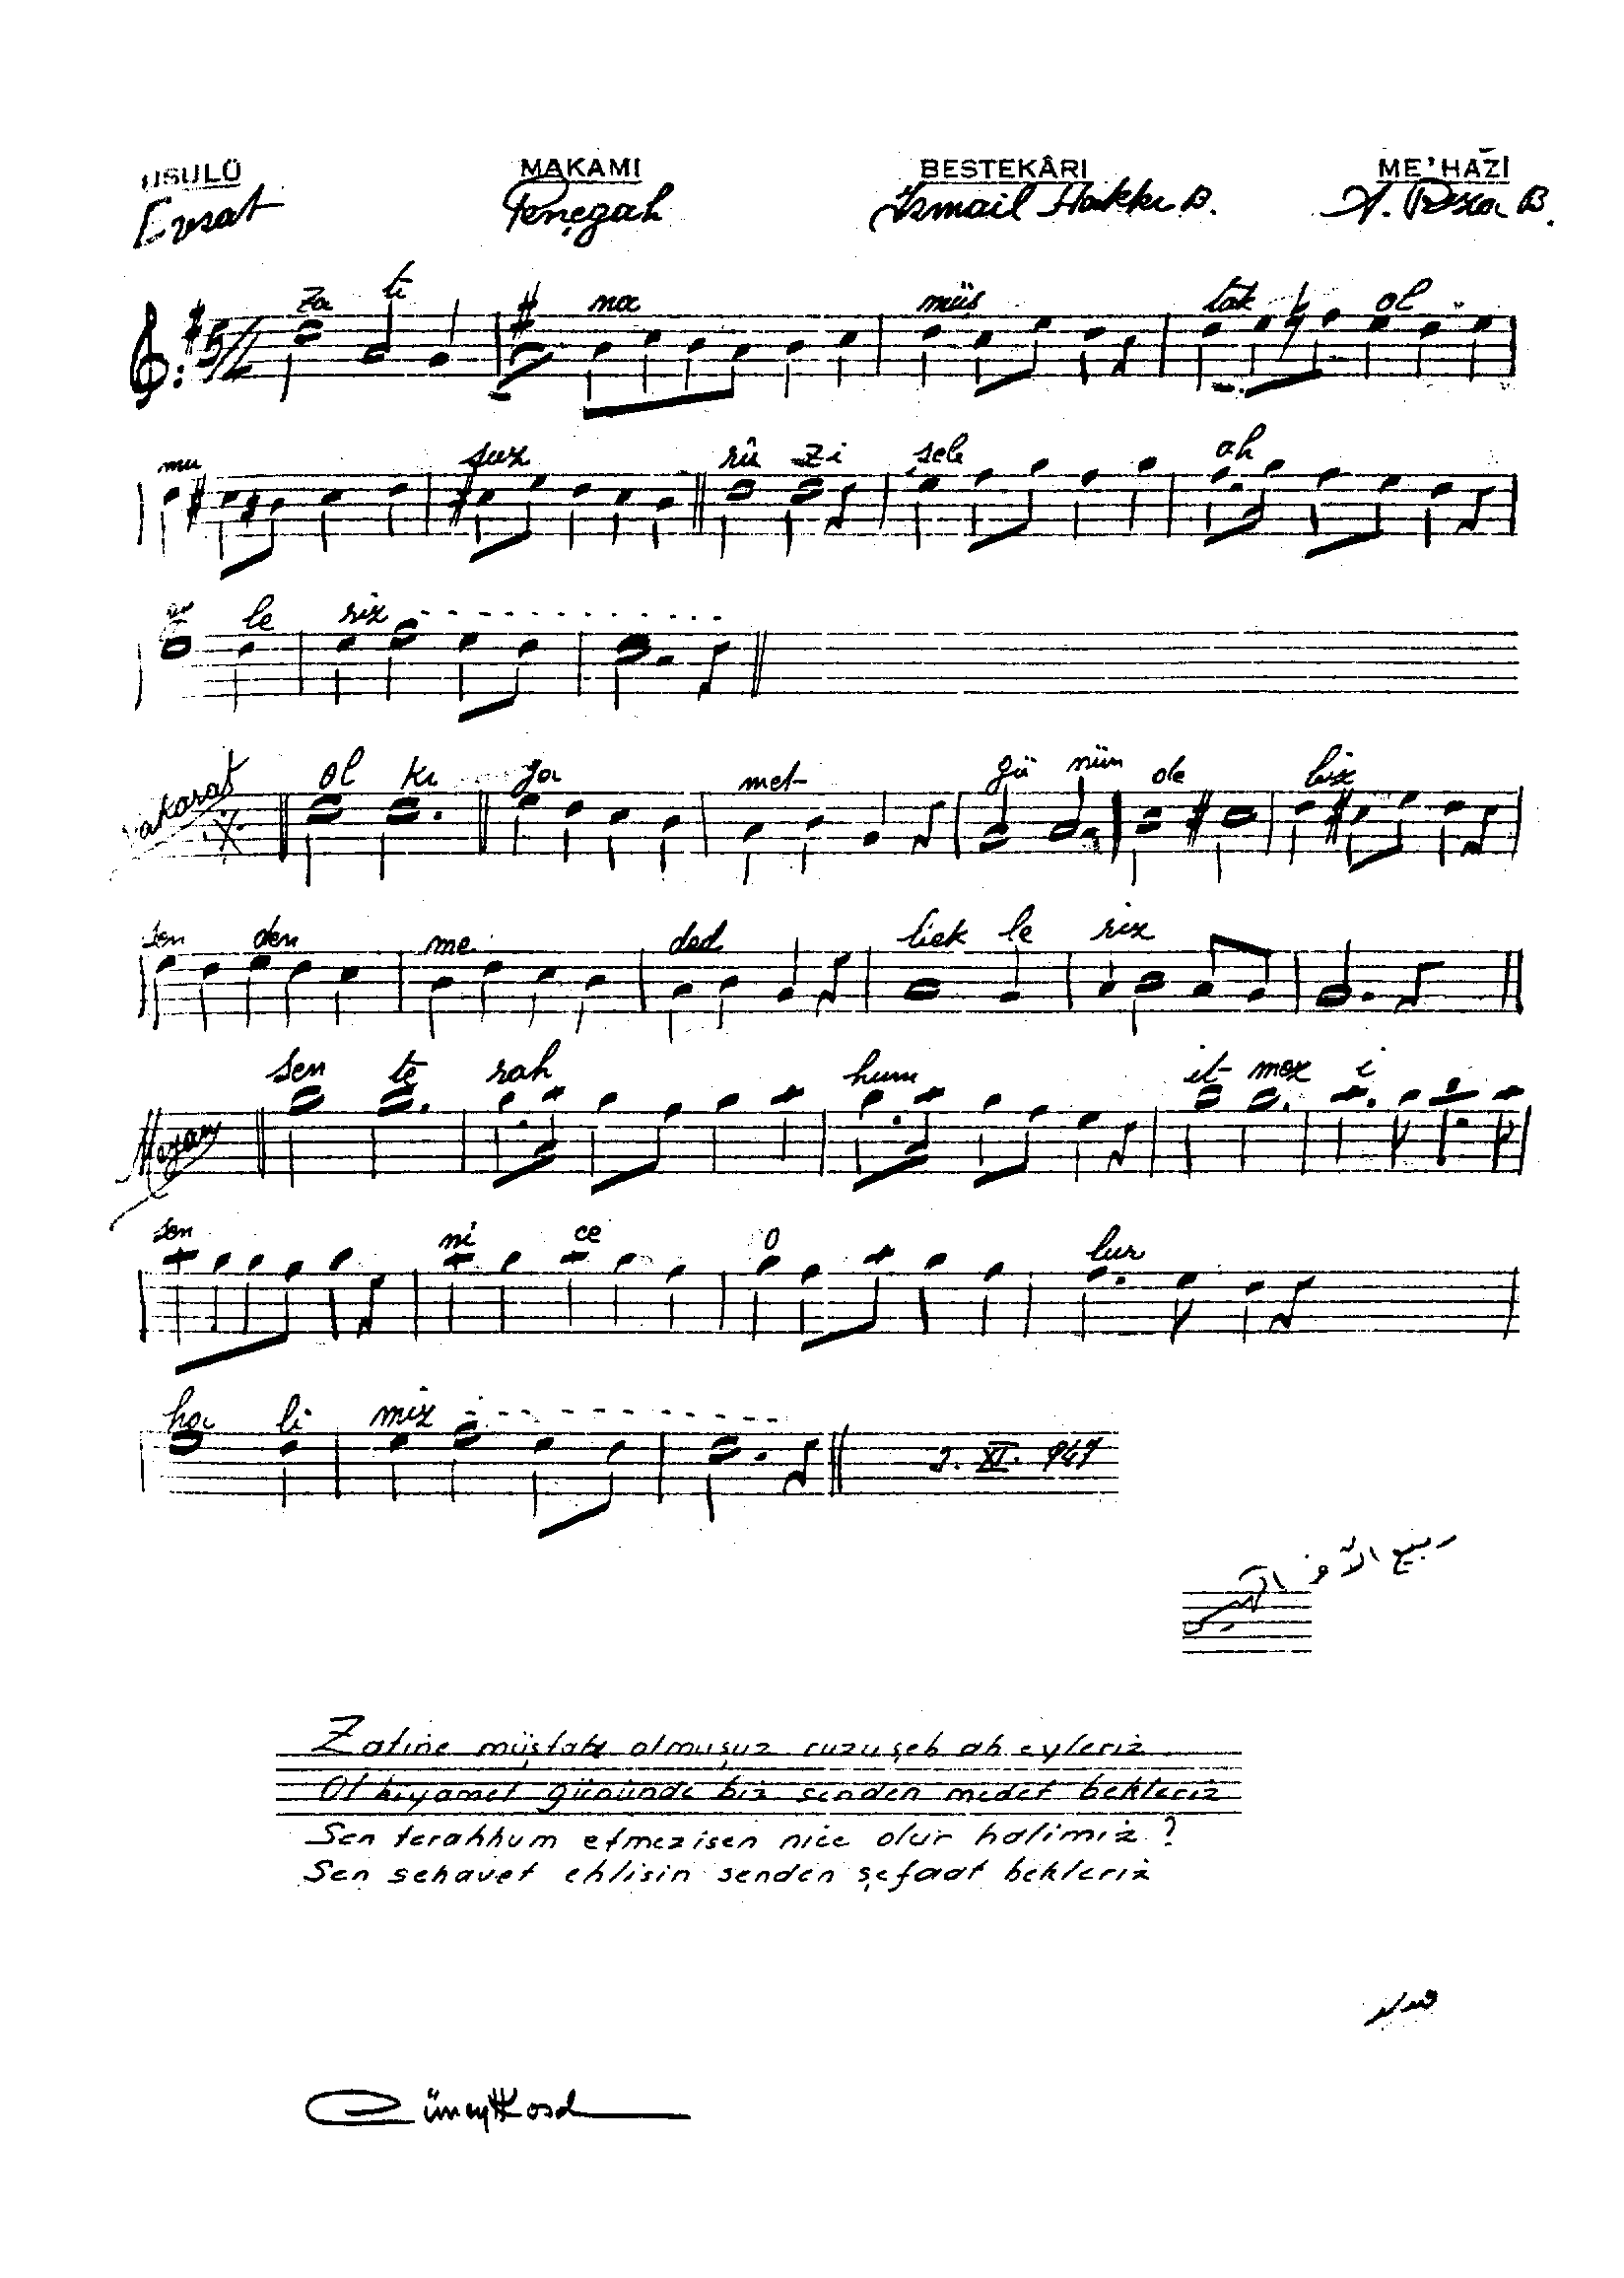 USULÜ MAKAMI BESTEKÂRI ME'HAZİ
Evsat Pençgah İsmail Hakkı B. A. Rıza B.
Za ti na müş tak ol
mu şuz rû zi şeb ah
le riz
Nakarat ol kı ya met gü nün de biz
sen den me ded bek le riz
Meyan sen te rah hum it mez i
sen ni ce o lur
ha li miz
2. XI. 947
ربيع الآخر
Zatıne müştak olmuşuz ruzuşeb ah eyleriz
Ol kıyamet gününde biz senden medet bekleriz
Sen terahhum etmezisen nice olur halimiz?
Sen sehavet ehlisin senden şefaat bekleriz
Cüneyt Kosal